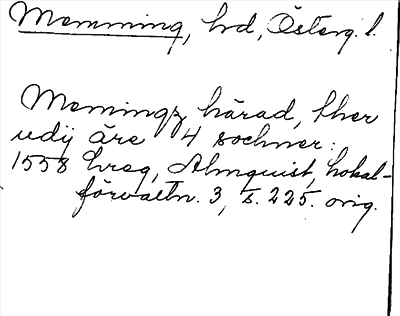 Memming, hd, Österg. l.
Memingz härad, ther
udij äre 4 sochner:
1558 hreg, Almquist, Lokal-
förvaltn. 3, s. 225. orig.